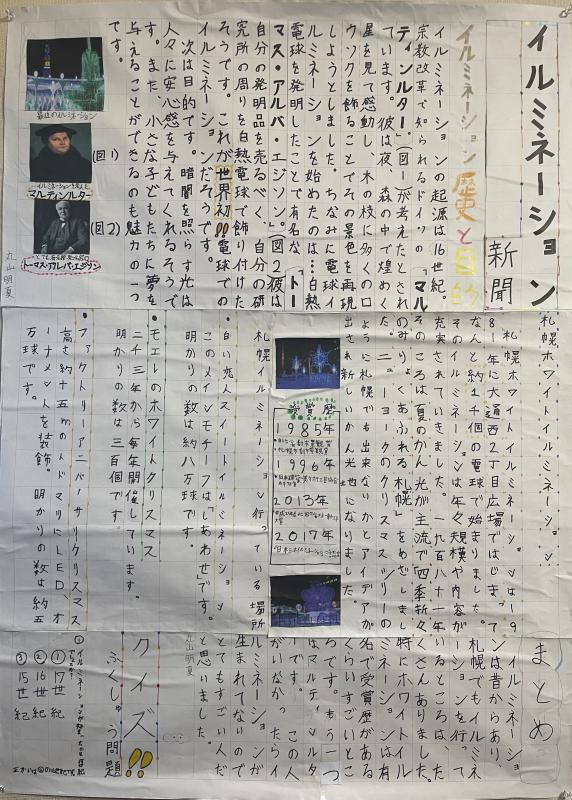 イルミネーション
新聞
イルミネーション歴史と目的
イルミネーションの起源は16世紀。
宗教改革で知られるドイツの「マル
ティンルター」(図1)が考えたとされ
ています。彼は夜、森の中で煌めく
星を見て感動し、木の枝に多くのロ
ウソクを飾ることでその景色を再現
しようとしました。ちなみに電球イ
ルミネーションを始めたのは…白熱
電球を発明したことで有名な「トー
マス・アルバ・エジソン」(図2)彼は
自分の発明品を売るべく、自分の研
究所の周りを白熱電球で飾り付けた
そうです。これが世界初!!電球での
イルミネーションだそうです。
次は目的です。暗闇を照らす光は
人々に安心感を与えてくれるそうで
す。また、小さな子どもたちに夢を
与えることができるのも魅力の一つ
です。
最近のイルミネーション
(図1)
マルティンルター
(図2)
トーマス・アルバ・エジソン
丸山明夏
札幌ホワイトイルミネーション
札幌ホワイトイルミネーションは一9
8一年に大通西2丁目広場ではじまっ
なんと約1千個の電球で始まりました。
そのイルミネーションは年々規模や内容が
充実されていきました。一九八十一年
そのころは夏のかん光が主流で「四季折々
のみりょくあふれる札幌」をめざしまし
た。ニューヨークのクリスマスツリーの
ように札幌でも出来ないかとアイデアが
出され新しいかん光せになりました。
受賞歴
1985年
1996年
2013年
2017年
札幌イルミネーション行っている場所
・白い恋人スイートイルミネーション
このメインモチーフは「しあわせ」です。
明かりの数は約八万球です。
・モエレのホワイトクリスマス
二千三年から毎年開催しています。
明かりの数は三百個です。
・ファクトリーアニバーサリクリスマス
高さ約十五mのトドマツにLED、オ
ーナメントを装飾。明かりの数は約五
万球です。
まとめ
イルミネーショ
ンは昔からあり、
札幌でもイルミネ
ーションを行って
いるところは、た
くさんありました。
特にホワイトイル
ミネーションは有
名で受賞歴がある
くらいすごいとこ
ろです。もう一つ
はマルティンルタ
ーです。この人
がいなかったらイ
ルミネーションが
生まれてないので
とてもすごい人だ
と思いました。
丸山明夏
クイズ!!
ふくしゅう問題
①17世紀
②16世紀
③15世紀